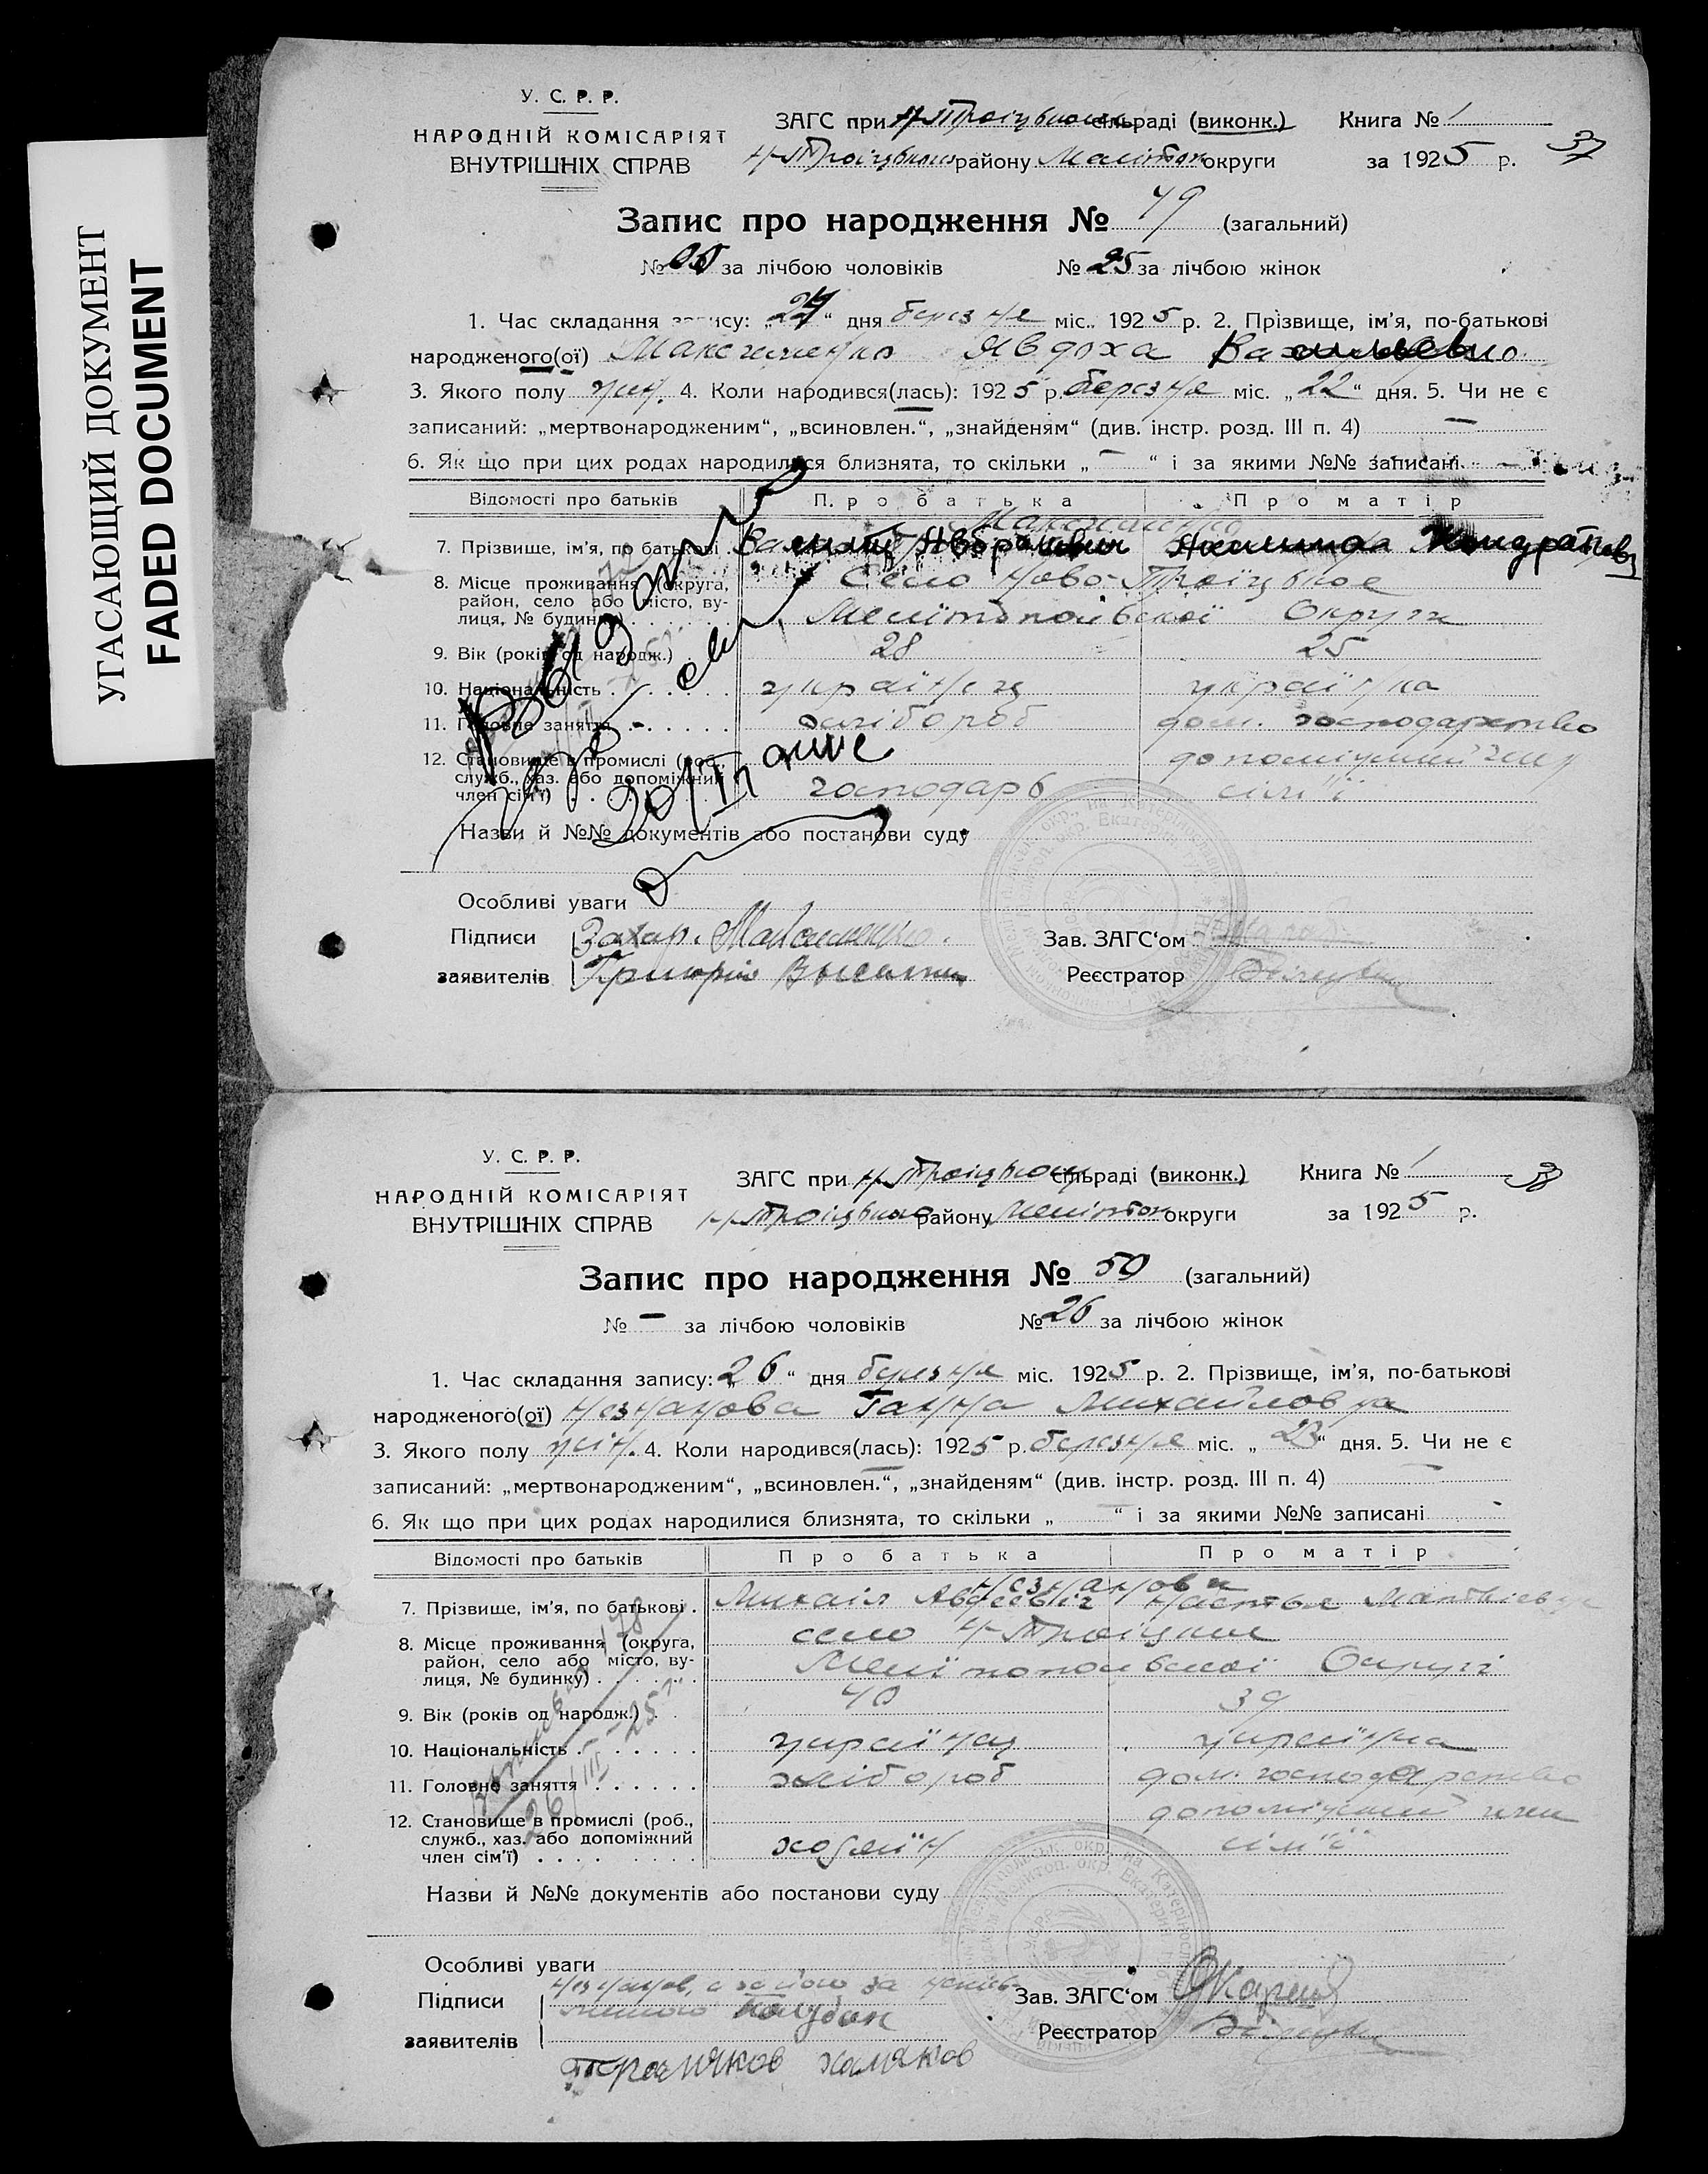 УГАСАЮЩИЙ ДОКУМЕНТ
FADED DOCUMENT
У. С. Р. Р.
НАРОДНІЙ КОМІСАРІЯТ
ВНУТРІШНІХ СПРАВ
ЗАГС при Н-Троіцькому сільраді (виконк.) Книга № 1
Н-Троіцького району Мелітоп округи за 1925 р. 37
Запис про народження № 49 (загальний)
№ за лічбою чоловіків № 25 за лічбою жінок
1. Час складання запису: „24“ дня березня міс. 1925 р. 2. Прізвище, ім'я, по-батькові
народженого(ої) Максименко Явдоха Васильевно
3. Якого полу жін. 4. Коли народився(лась): 1925 р. березня міс. „22“ дня. 5. Чи не є
записаний: „мертвонародженим“, „всиновлен.“, „знайденям“ (див. інстр. розд. III п. 4) —
6. Як що при цих родах народилися близнята, то скільки „—“ і за якими №№ записані —
Відомості про батьків Про батька Про матір
Максименко
7. Прізвище, ім'я, по батькові
8. Місце проживання (округа, Село Ново-Троїцькое
район, село або місто, ву-
лиця, № будинку) Мелітопольської Округи
9. Вік (років од народж.) 28 25
10. Національність українец українка
11. Головне заняття хлібороб дом. господарство
12. Становище в промислі (роб., допоміжний член
служб., хаз. або допоміжний
член сім'ї) господарь сім'ї
Назви й №№ документів або постанови суду
Особливі уваги
Підписи Захар. Максименко Зав. ЗАГС'ом
заявителів Григорій Реєстратор
У. С. Р. Р.
НАРОДНІЙ КОМІСАРІЯТ
ВНУТРІШНІХ СПРАВ
ЗАГС при Н-Троіцькому сільраді (виконк.) Книга № 1
Н-Троіцького району Мелітоп округи за 1925 р. 38
Запис про народження № 50 (загальний)
№ — за лічбою чоловіків № 26 за лічбою жінок
1. Час складання запису: „26“ дня березня міс. 1925 р. 2. Прізвище, ім'я, по-батькові
народженого(ої) Незнанова Ганна Михайловна
3. Якого полу жін. 4. Коли народився(лась): 1925 р. березня міс. „23“ дня. 5. Чи не є
записаний: „мертвонародженим“, „всиновлен.“, „знайденям“ (див. інстр. розд. III п. 4) —
6. Як що при цих родах народилися близнята, то скільки „—“ і за якими №№ записані
Відомості про батьків Про батька Про матір
Незнанови
7. Прізвище, ім'я, по батькові Михаіл Авдеєвіч Настья
8. Місце проживання (округа, село Н-Троіцкое
район, село або місто, ву-
лиця, № будинку) Мелітопольської Округі
9. Вік (років од народж.) 40 39
10. Національність українец українка
11. Головне заняття хлібороб дом. господарство
12. Становище в промислі (роб., допоміжний член
служб., хаз. або допоміжний
член сім'ї) хозяїн сім'ї
Назви й №№ документів або постанови суду
Особливі уваги
Підписи Зав. ЗАГС'ом
заявителів Реєстратор